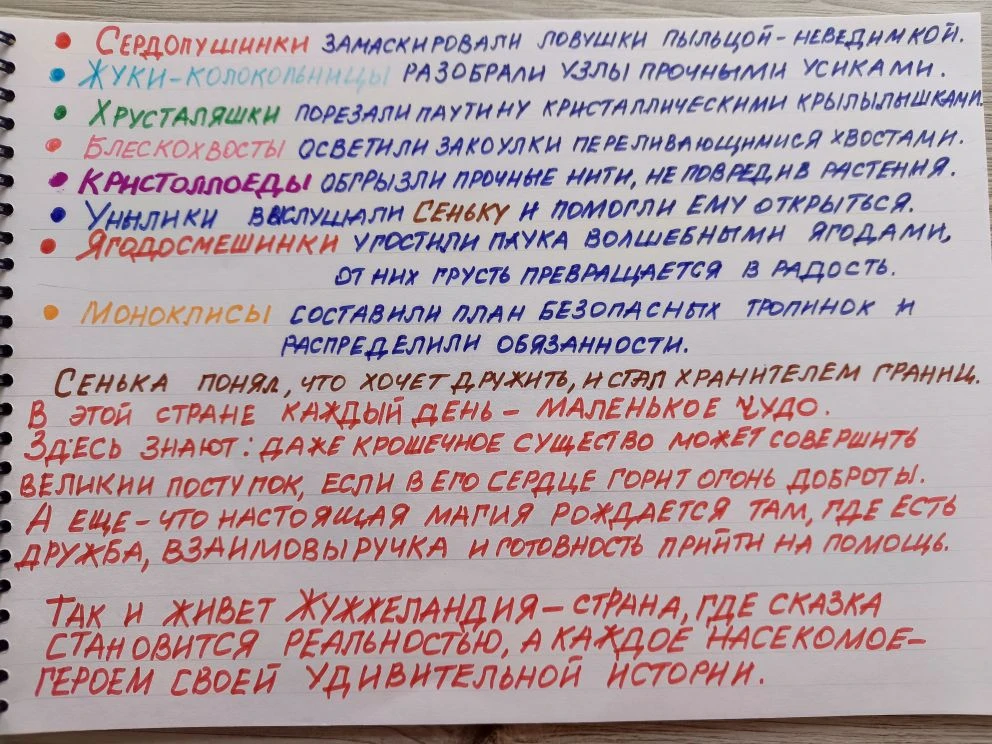 • Сердопушинки замаскировали ловушки пыльцой-неведимкой.
• Жуки-колокольницы разобрали узлы прочными усиками.
• Хрусталяшки порезали паутину кристаллическими крылылышками.
• Блескохвосты осветили закоулки переливающимися хвостами.
• Кристоллоеды обгрызли прочные нити, не повредив растения.
• Унылики выслушали Сеньку и помогли ему открыться.
• Ягодосмешинки угостили паука волшебными ягодами,
от них грусть превращается в радость.
• Моноклисы составили план безопасных тропинок и
распределили обязанности.
Сенька понял, что хочет дружить, и стал хранителем границ.
В этой стране каждый день – маленькое чудо.
Здесь знают: даже крошечное существо может совершить
великий поступок, если в его сердце горит огонь доброты.
А еще – что настоящая магия рождается там, где есть
дружба, взаимовыручка и готовность прийти на помощь.
Так и живет Жужжеландия – страна, где сказка
становится реальностью, а каждое насекомое –
героем своей удивительной истории.